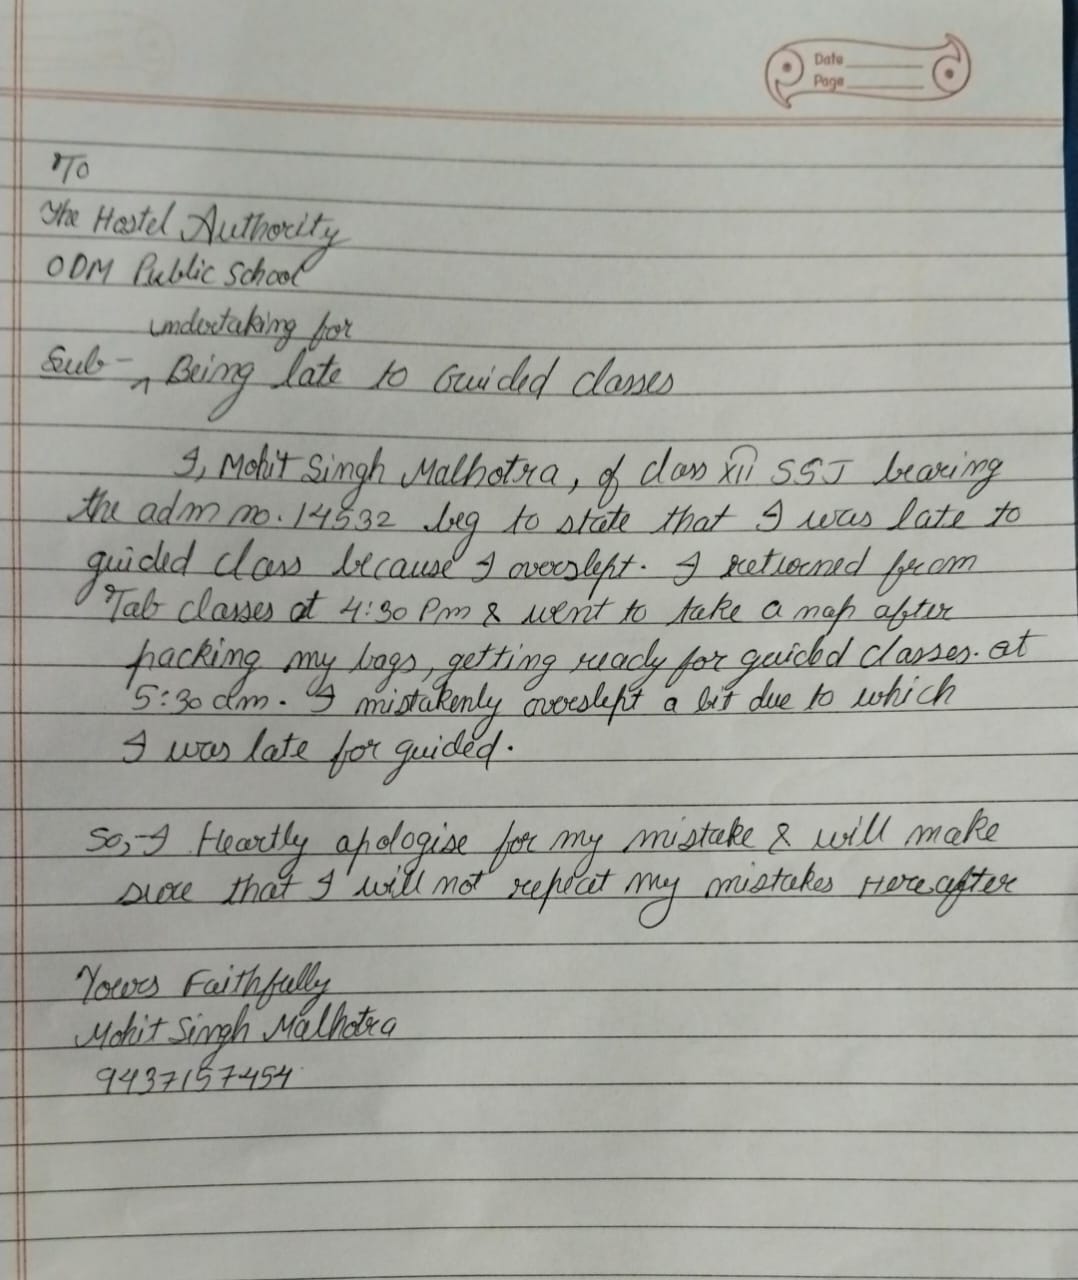 Date
Page
To
The Hostel Authority
ODM Public School
undertaking for
Sub- ^ Being late to Guided classes
I, Mohit Singh Malhotra, of class XII SSJ bearing
the adm no. 14532 beg to state that I was late to
guided class because I overslept. I returned from
Tab classes at 4:30 Pm & went to take a nap after
packing my bags, getting ready for guided classes. at
5:30 dm. I mistakenly overslept a bit due to which
I was late for guided.
So,-I Heartly apologise for my mistake & will make
sure that I will not repeat my mistakes Hereafter
Yours Faithfully
Mohit Singh Malhotra
9437157454